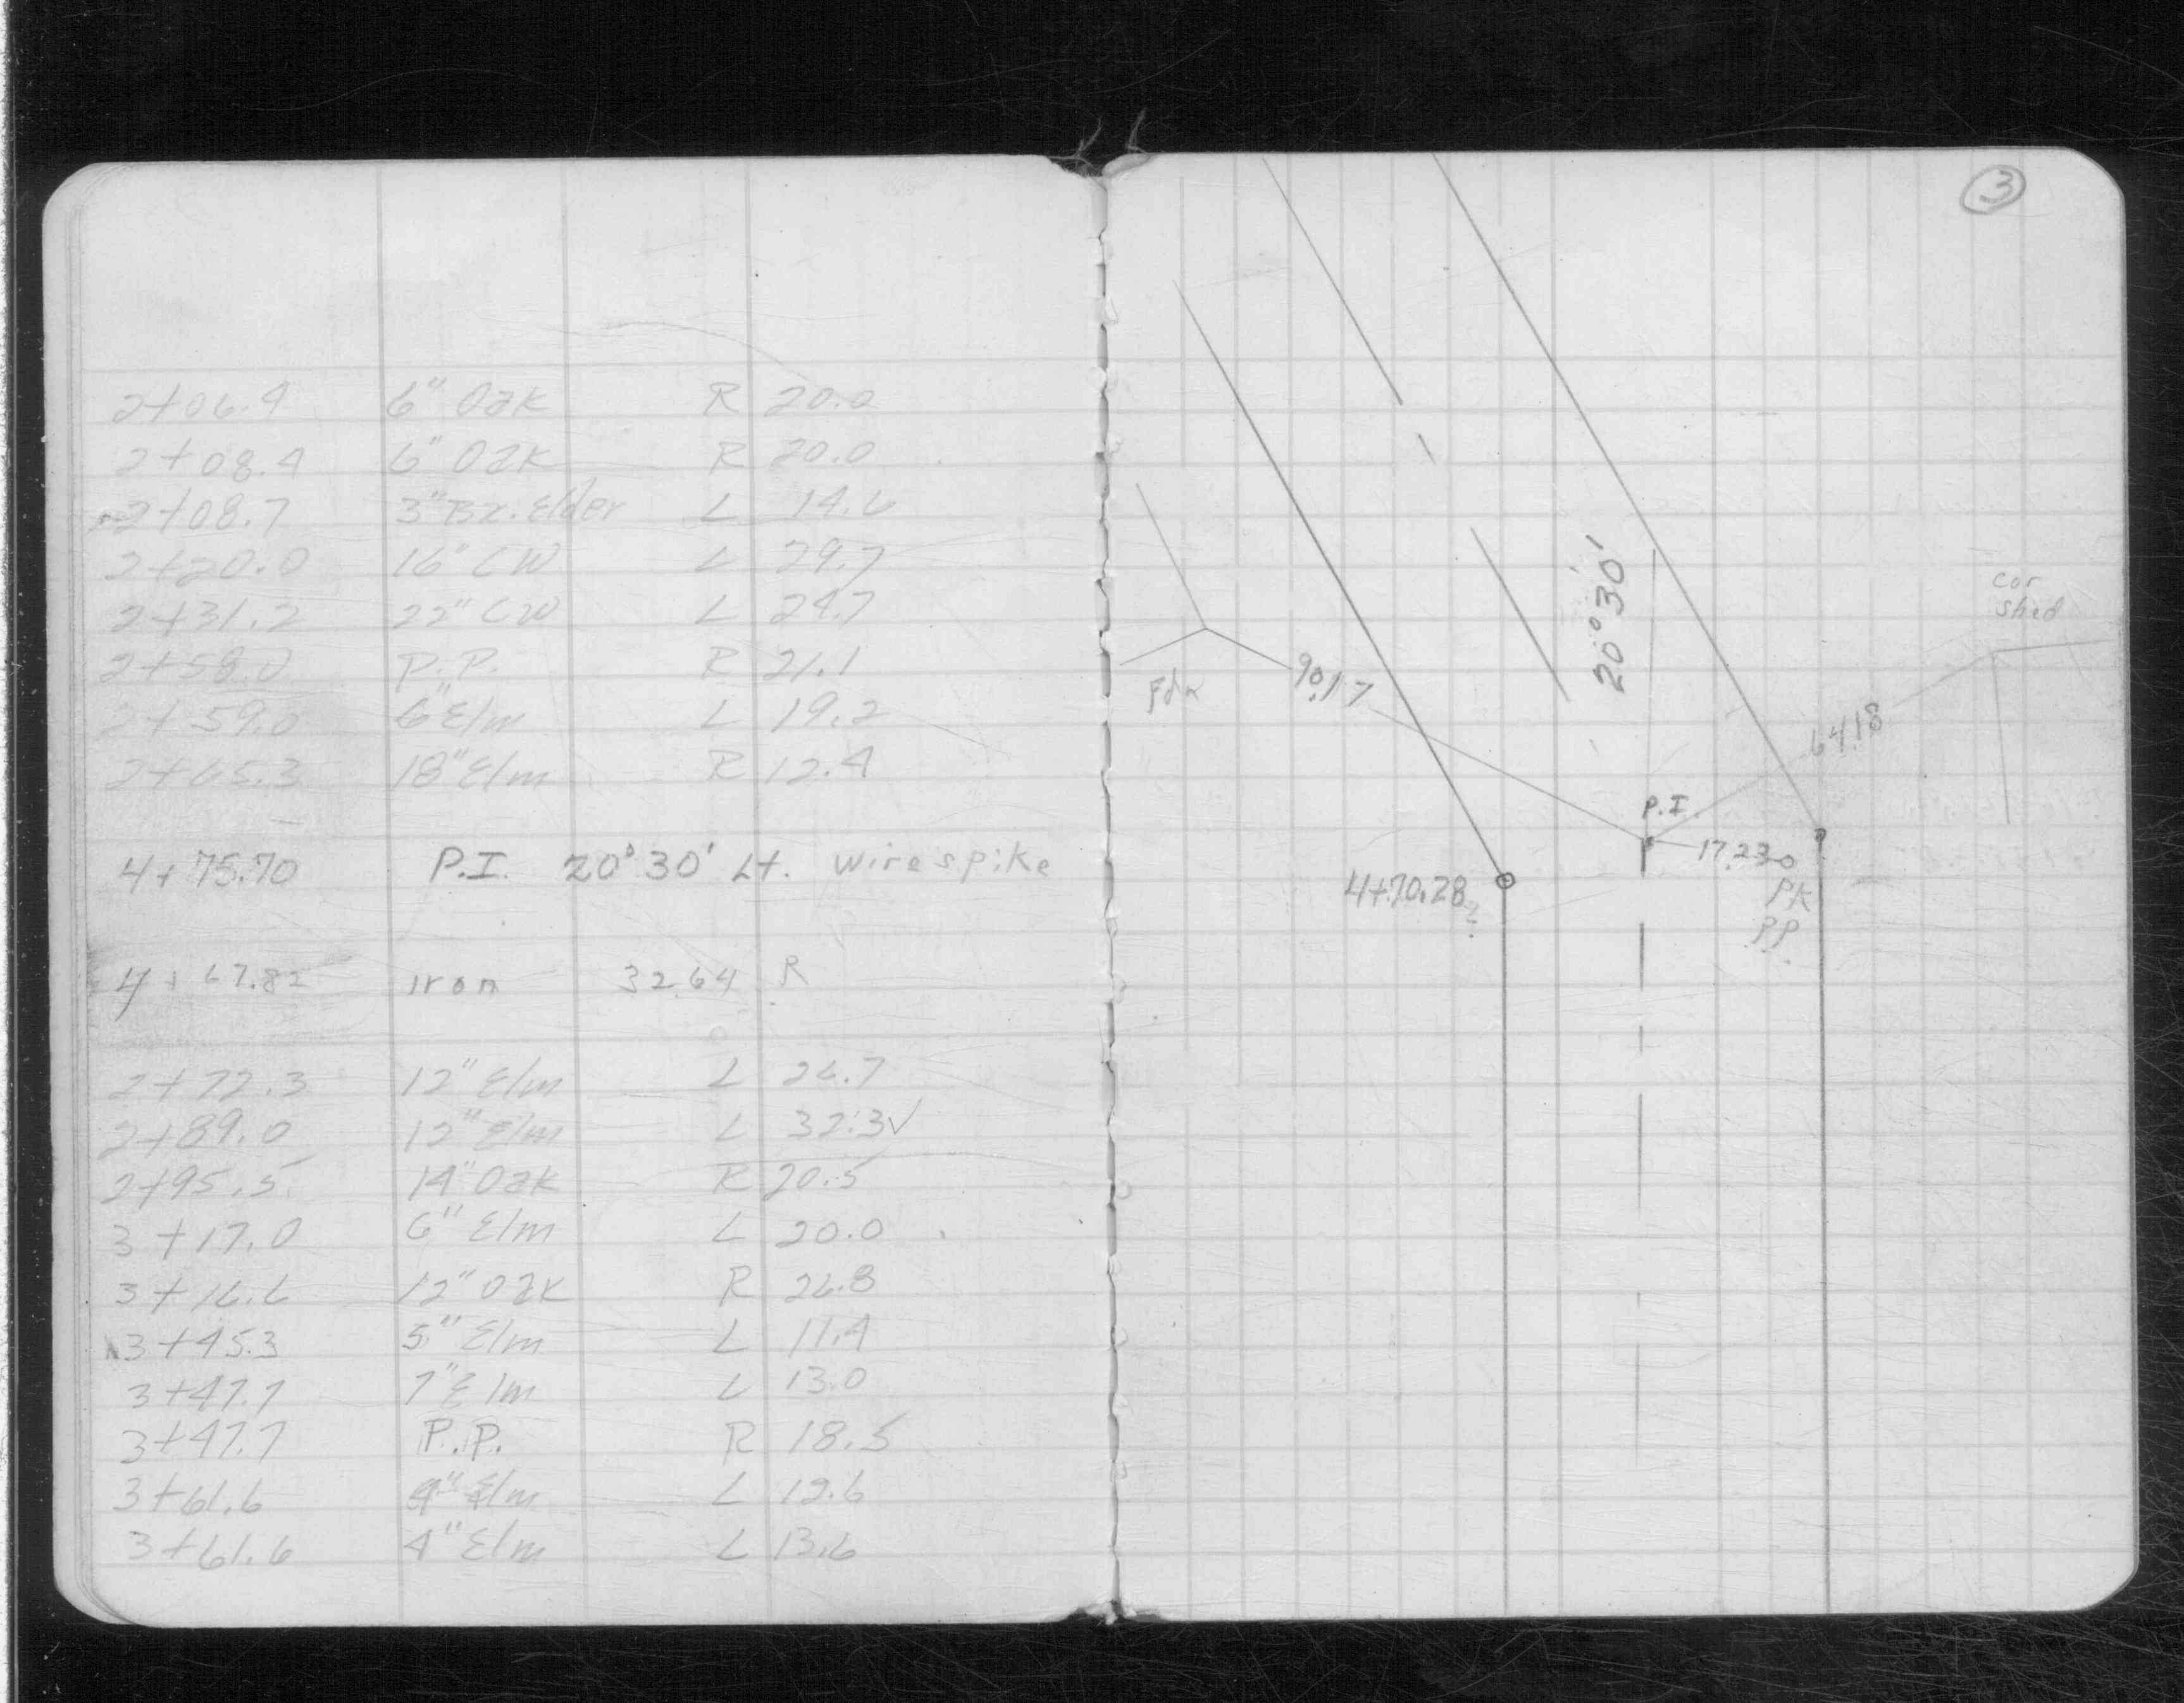 2+06.4 6" Oak R 20.0
2+08.4 6" Oak R 20.0
2+08.7 3" Bx. Elder L 14.6
2+20.0 16" CW L 29.7
2+31.2 22" CW L 24.7
2+58.0 P.P. R 21.1
2+59.0 6" Elm L 19.2
2+65.3 18" Elm R 12.4
4+75.70 P.I. 20°30' Lt. wire spike
4+67.82 Iron 32.64 R
2+72.3 12" Elm L 26.7
2+89.0 12" Elm L 32.3✓
2+95.5 14" Oak R 20.5
3+17.0 6" Elm L 20.0
3+16.6 12" Oak R 26.8
3+45.3 5" Elm L 11.4
3+47.7 7" Elm L 13.0
3+47.7 P.P. R 18.5
3+61.6 Elm L 12.6
3+61.6 4" Elm L 13.6
3
20°30'
cor
shed
90.17
64.18
P.I.
17.23
PK
PP.
4+70.28